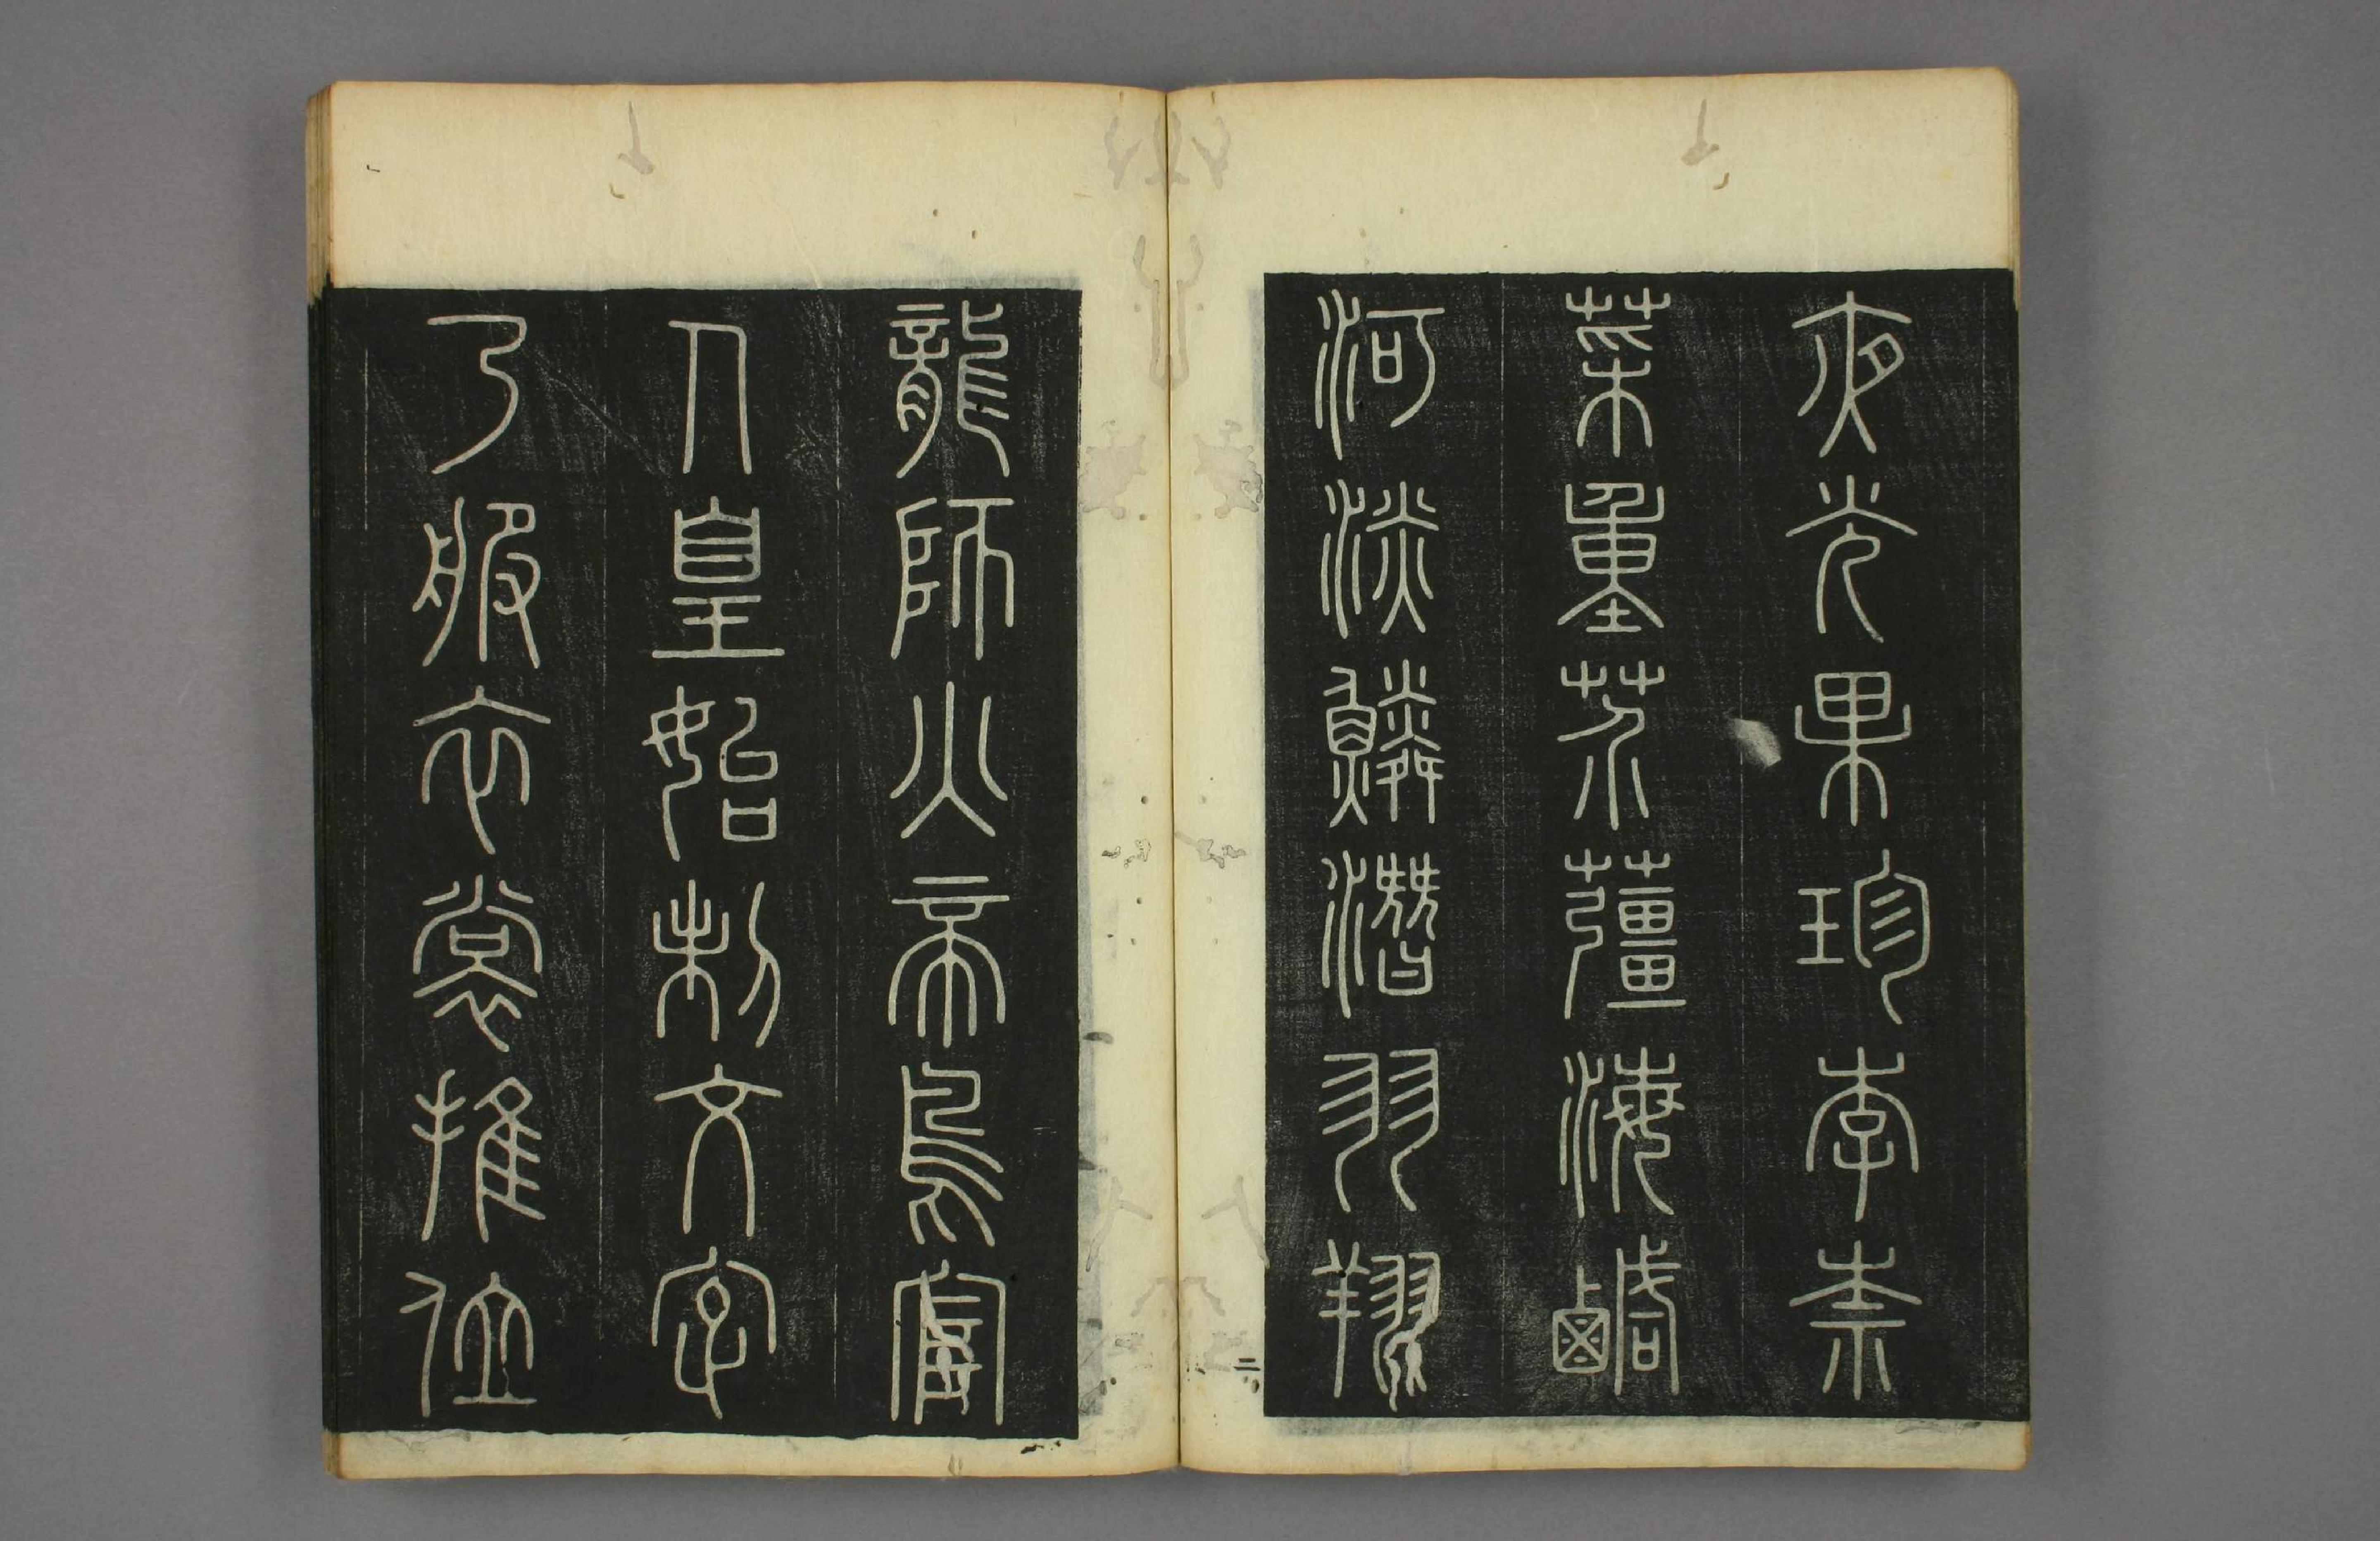 夜光果珍李柰
菜重芥薑海鹹
河淡鱗潛羽翔
龍師火帝鳥官
人皇始制文字
乃服衣裳推位